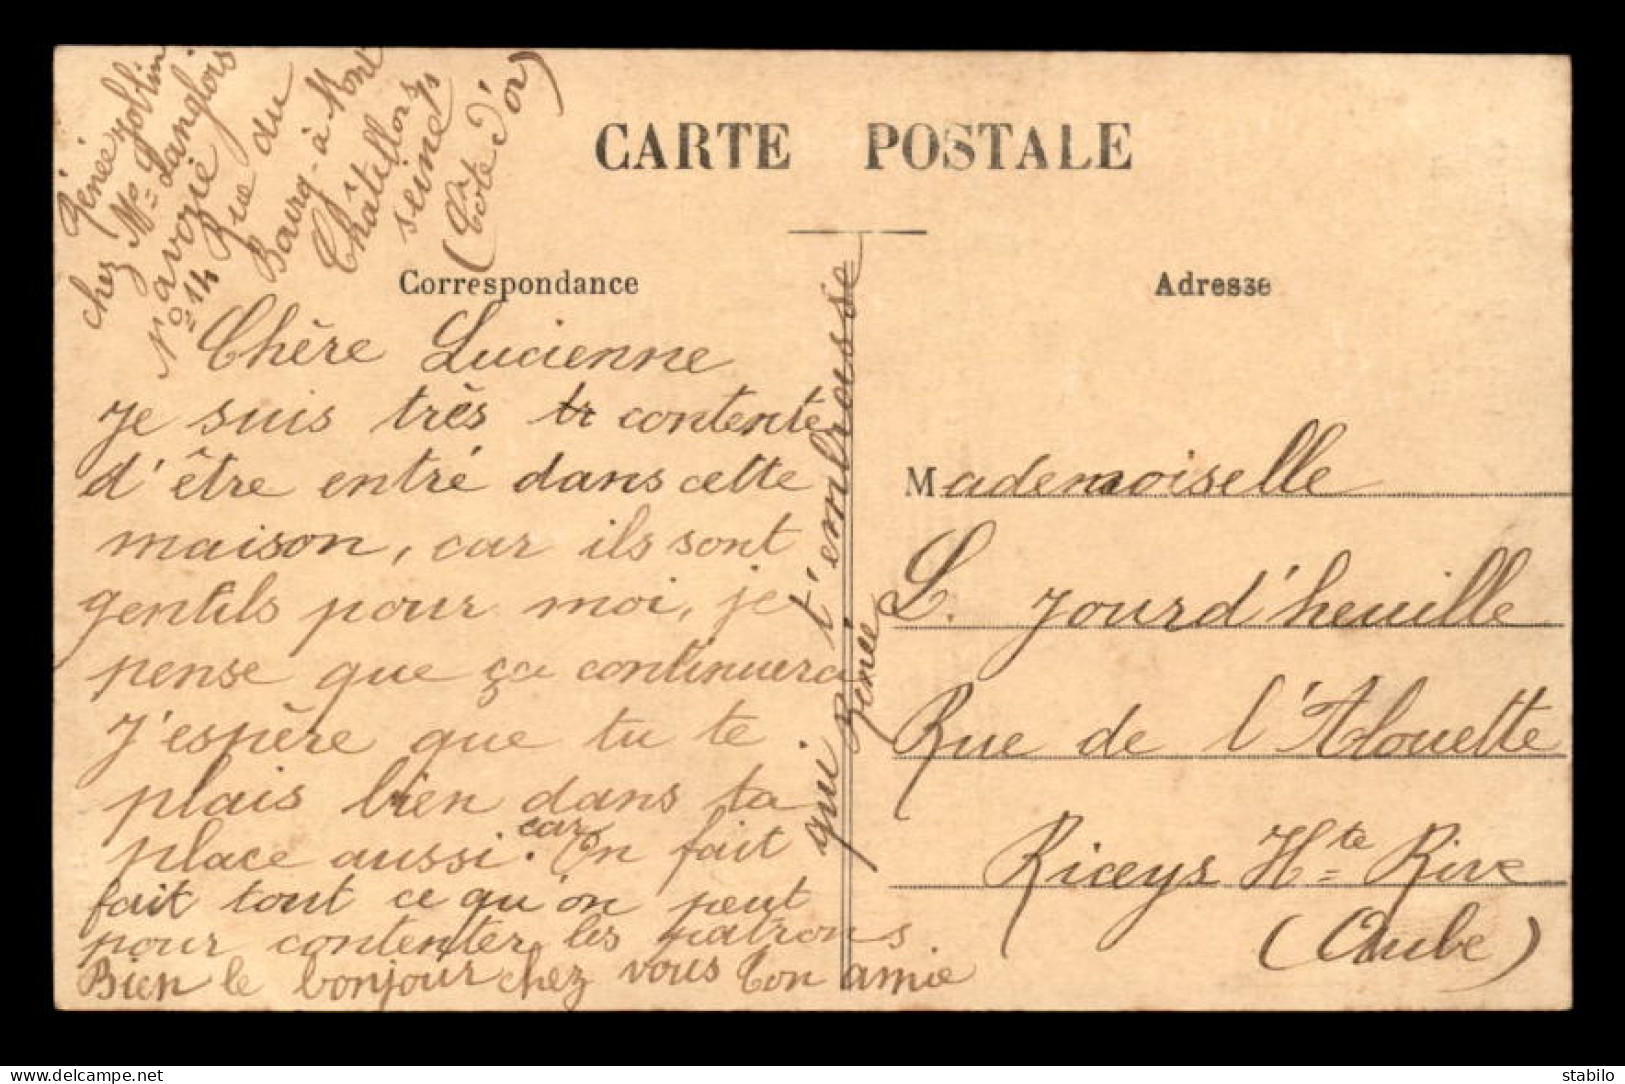 CARTE POSTALE
Correspondance
Adresse
chez Mr Langlois
avoué
No 14 Rue du
Bourg-à-Mont
Châtillon s
seine
(Côte d'or)
Chère Lucienne
Je suis très tr contente
d'être entré dans cette
maison, car ils sont
gentils pour moi, je
pense que ça continuera
J'espère que tu te
plais bien dans ta
place aussi. car On fait
fait tout ce qu'on peut
pour contenter les patrons.
Bien le bonjour chez vous Ton amie
qui t'embrasse
Mademoiselle
L. Jourd'heuille
Rue de l'Alouette
Riceys Hte Rive
(Aube)
stabilo